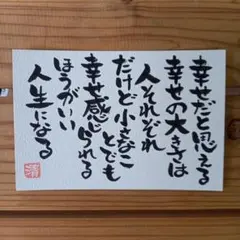 幸せだと思える
幸せの大きさは
人それぞれ
だけど小さなこ
とでも
幸せ感じられる
ほうがいい
人生になる